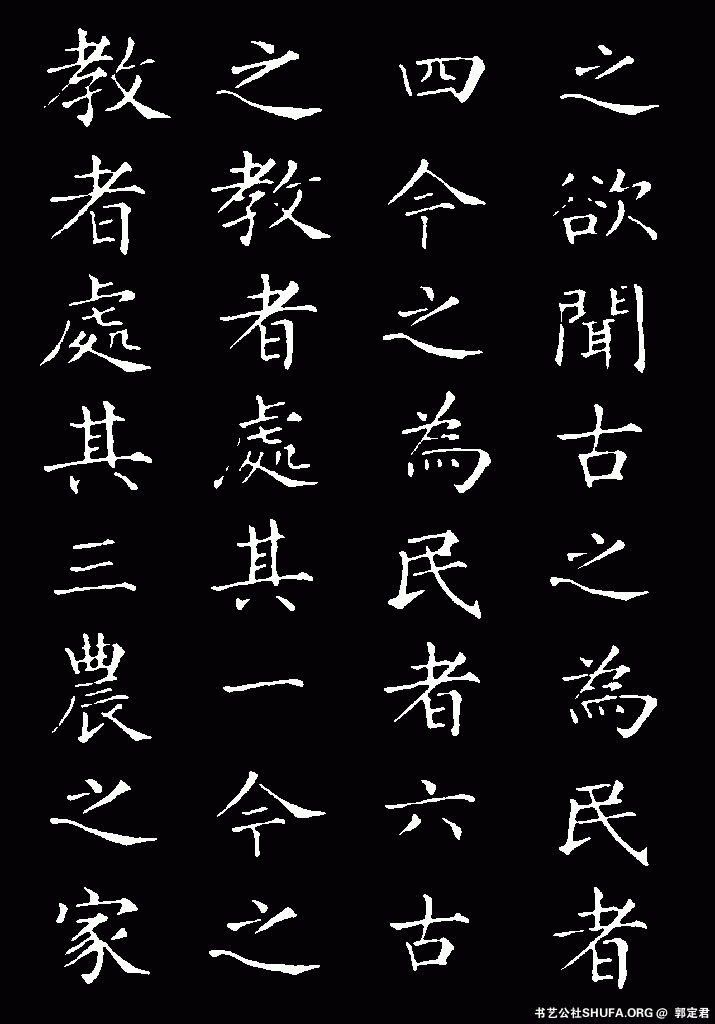 之欲聞古之為民者
四今之為民者六古
之教者處其一今之
教者處其三農之家
书艺公社SHUFA.ORG @ 郭定君